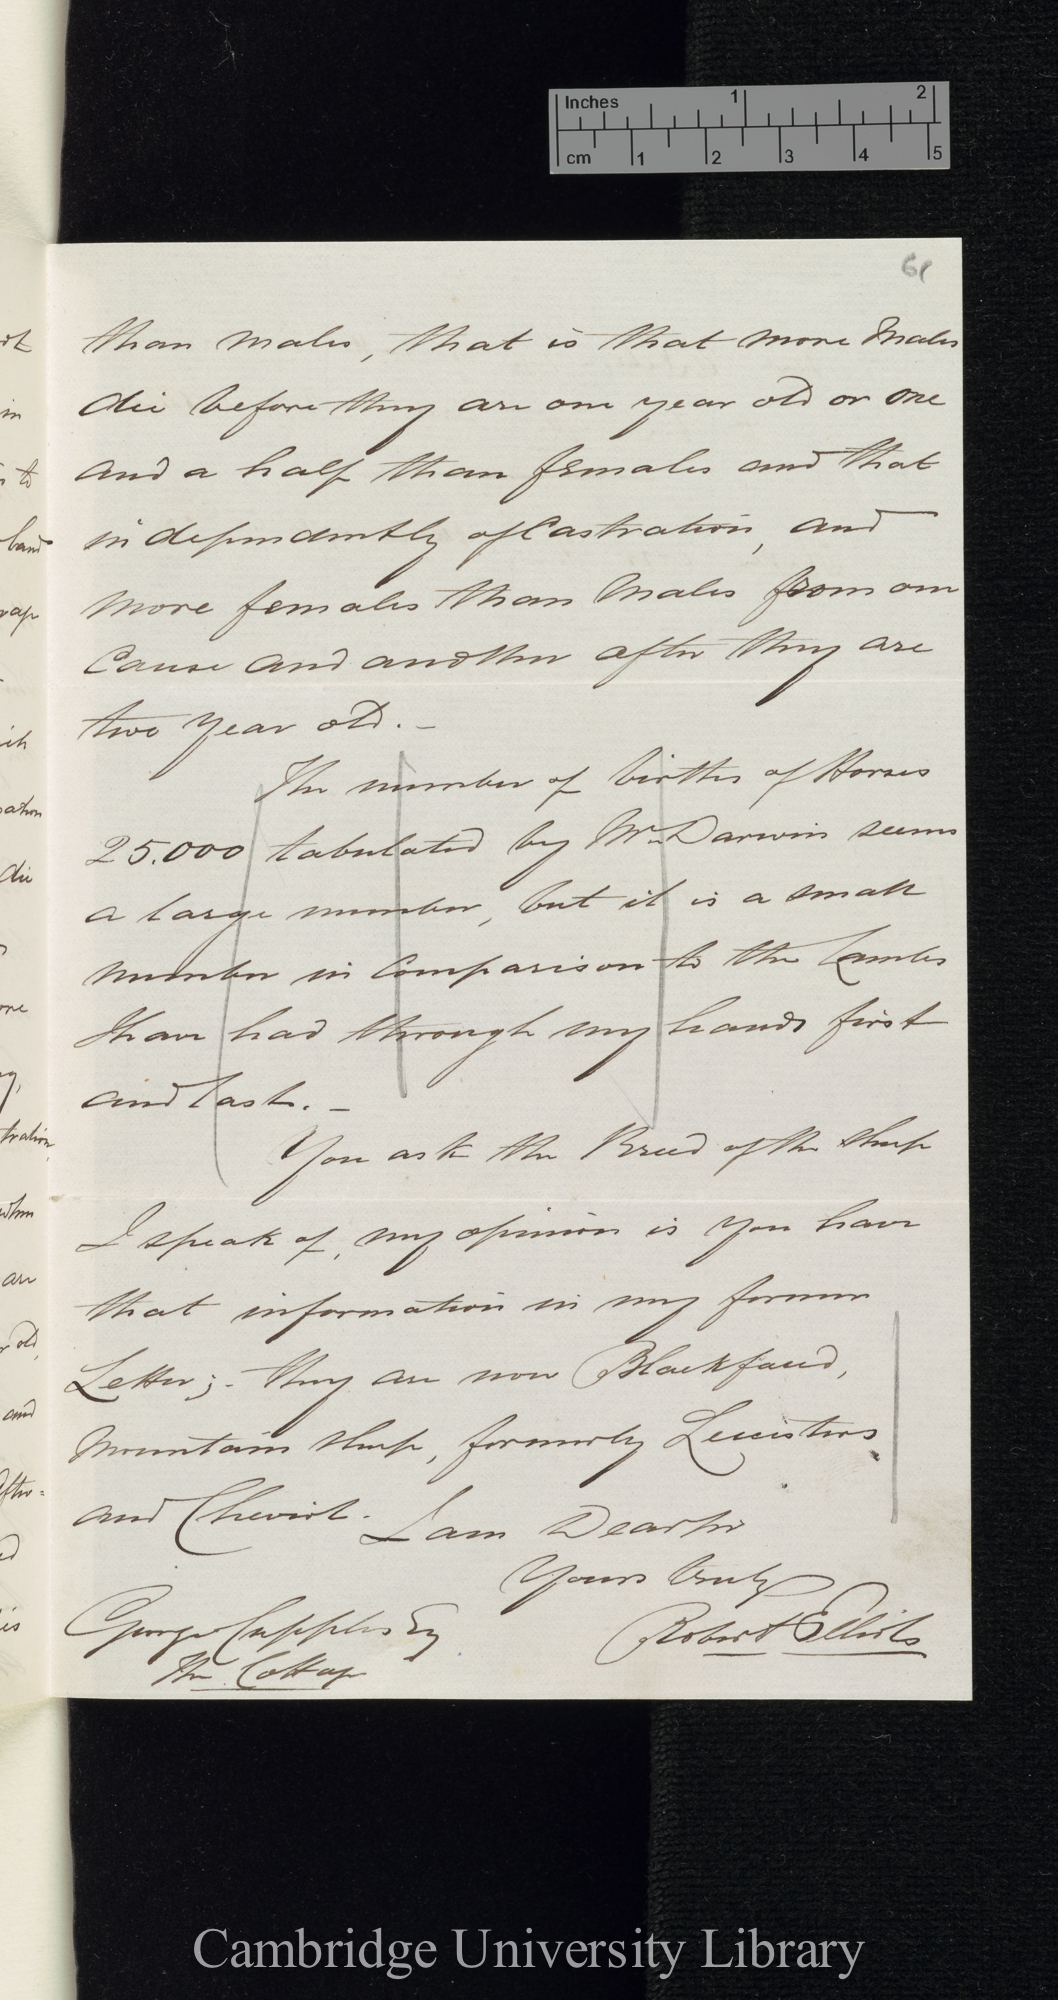 Inches 1 2
cm 1 2 3 4 5
61
than males, that is that more Males
die before they are one year old or one
and a half than females and that
independently of Castration, and
more females than Males from one
Cause and another after they are
two year old. –
The number of births of Horses
25.000 tabulated by Mr. Darwin seems
a large number, but it is a small
number in Comparison to the Lambs
I have had through my hands first
and last. –
You ask the Breed of the sheep
I speak of, my opinion is you have
that information in my former
Letter; - they are now Blackfaced,
Mountain sheep, formerly Leicsters
and Cheviot.
I am Dear Sir
Yours truly
Robert Elliot
George Cupples Esq
The Cottage
Cambridge University Library